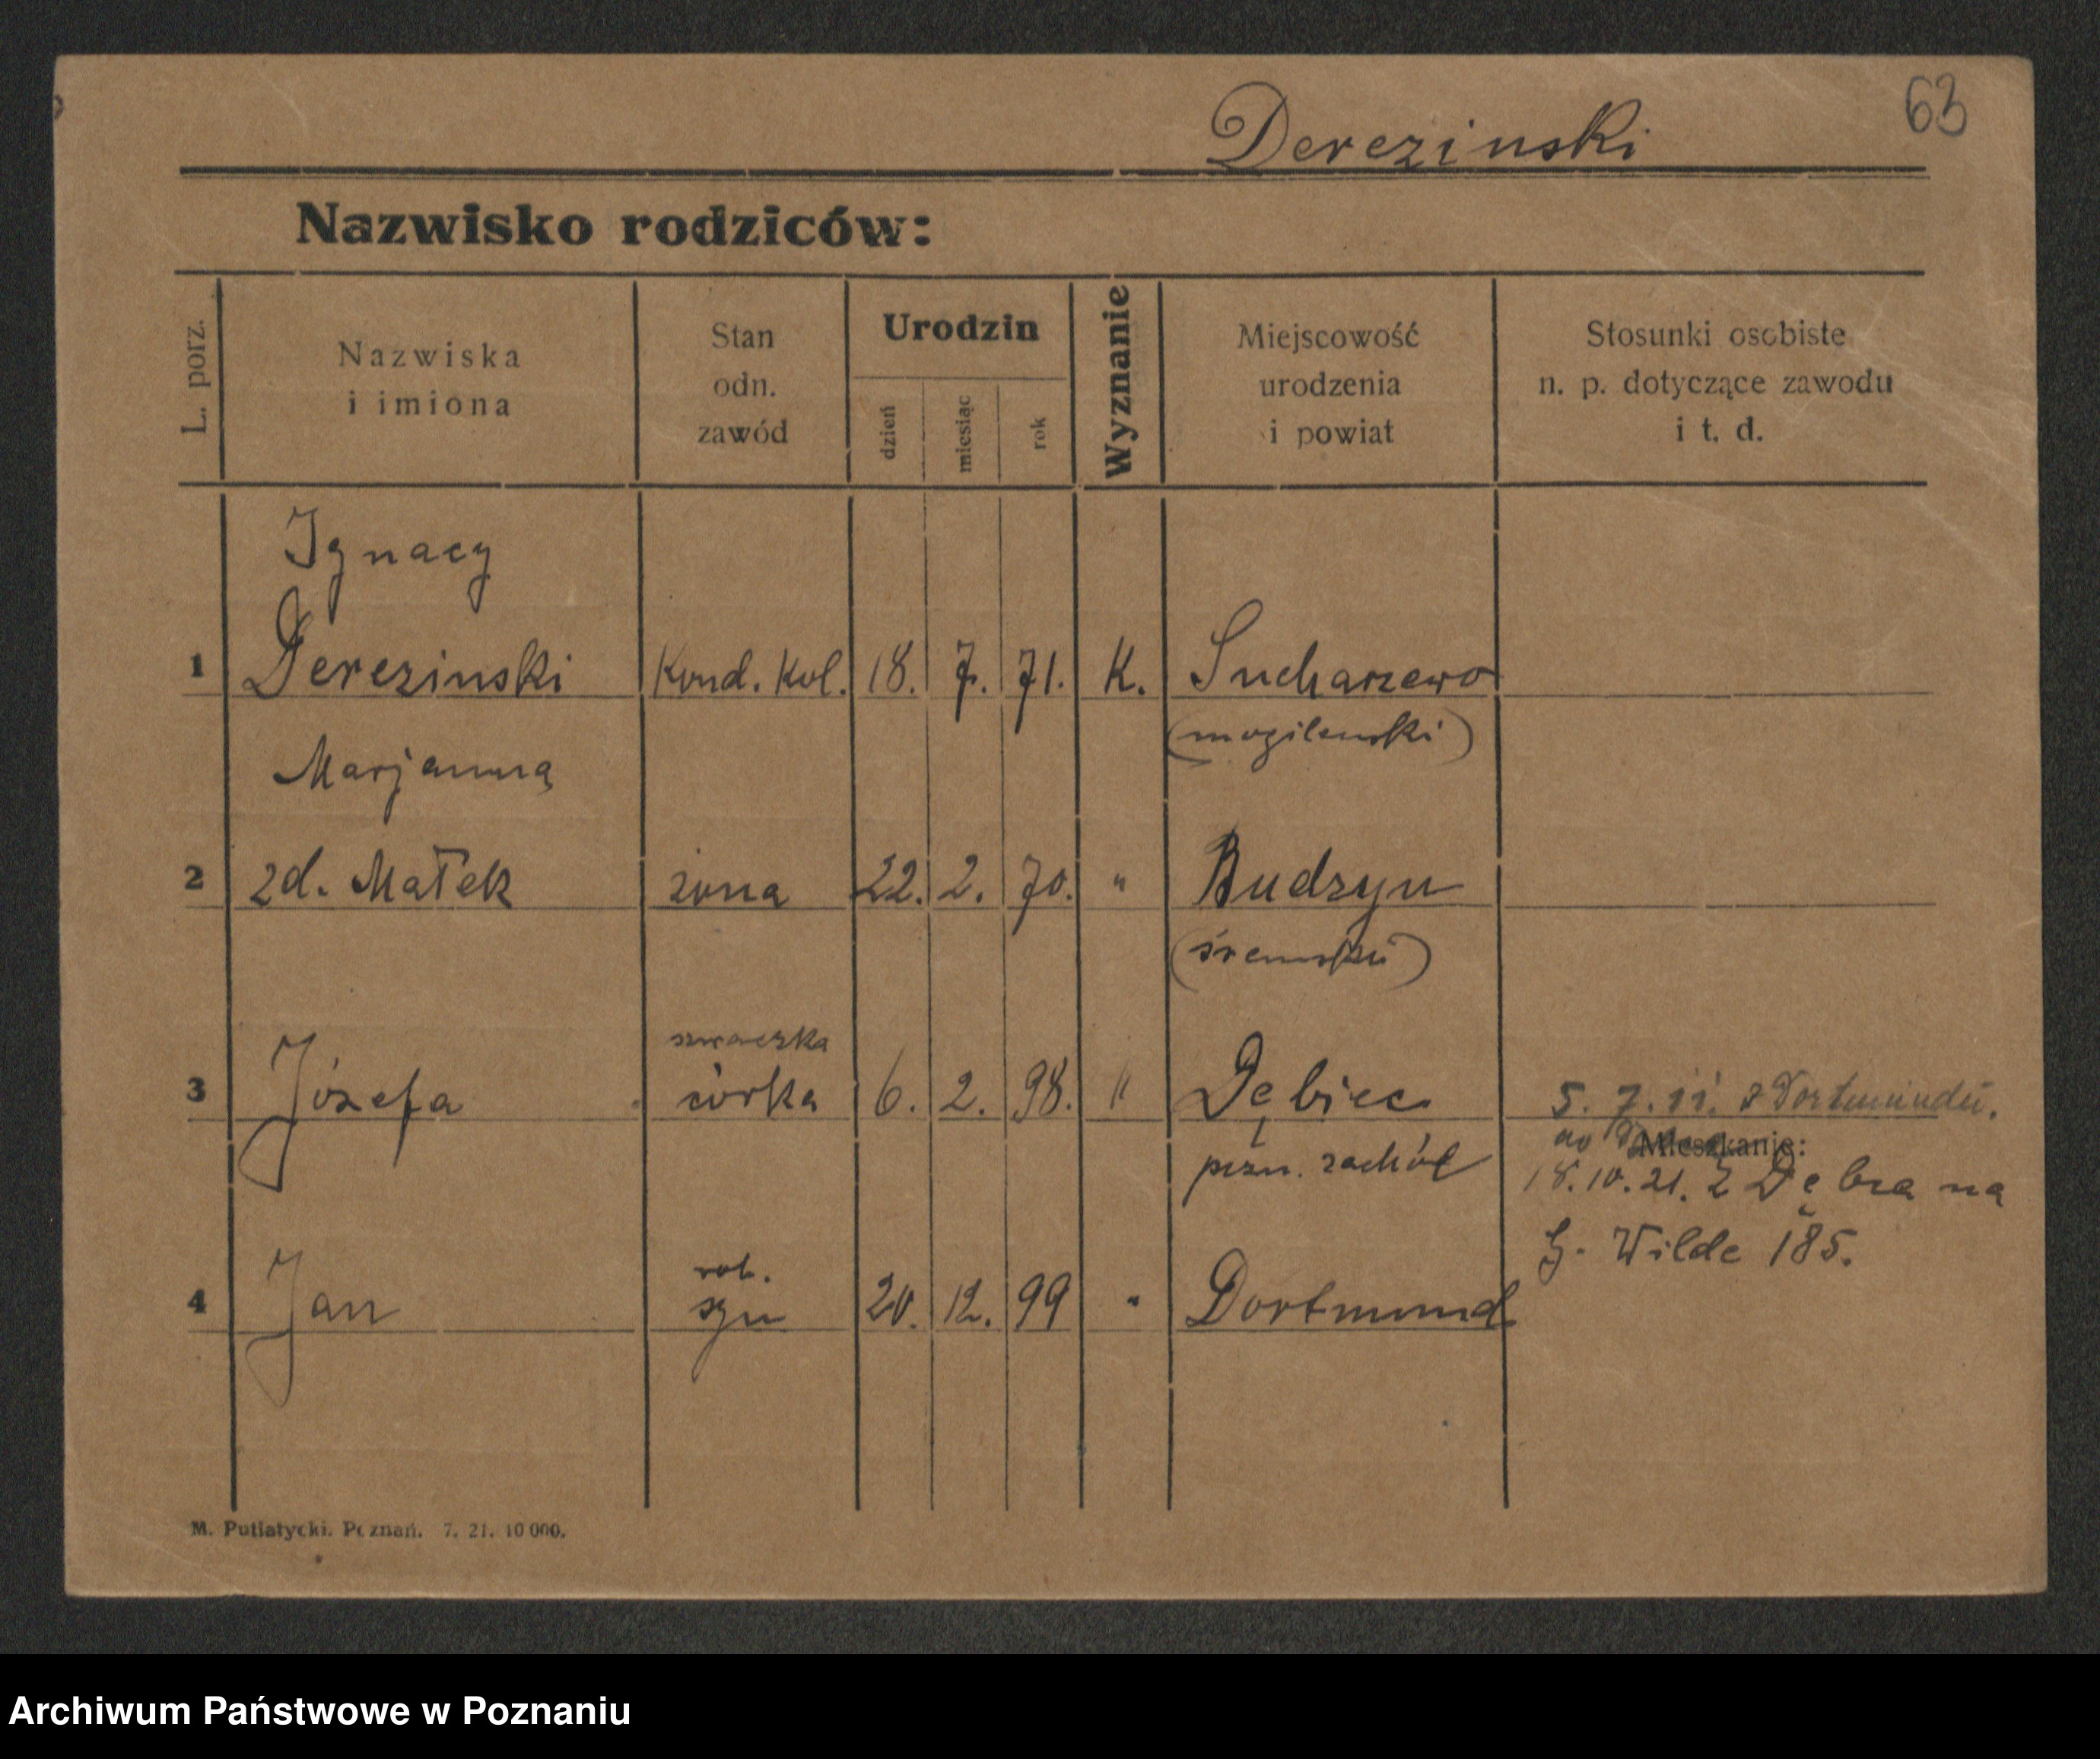 63
Derezinski
Nazwisko rodziców:
L. porz.
Nazwiska
i imiona
Stan
odn.
zawód
Urodzin
dzień
miesiąc
rok
Wyznanie
Miejscowość
urodzenia
i powiat
Stosunki osobiste
n. p. dotyczące zawodu
i t. d.
Ignacy
1 Derezinski Kond. Kol. 18. 7. 71. K. Sucharzewo
(mogilenski)
Marjanna
2 zd. Małek żona 22. 2. 70. " Budzyn
(śremski)
szwaczka
3 Józefa córka 6. 2. 98. " Dębiec 5. 7. 11. z Dortmundu.
Mieszkanie:
pozn. zachód 18. 10. 21. z Dębca na
G. Wilde 185.
rob.
4 Jan syn 20. 12. 99 " Dortmund
M. Putiatycki. Poznań. 7. 21. 10 000.
Archiwum Państwowe w Poznaniu